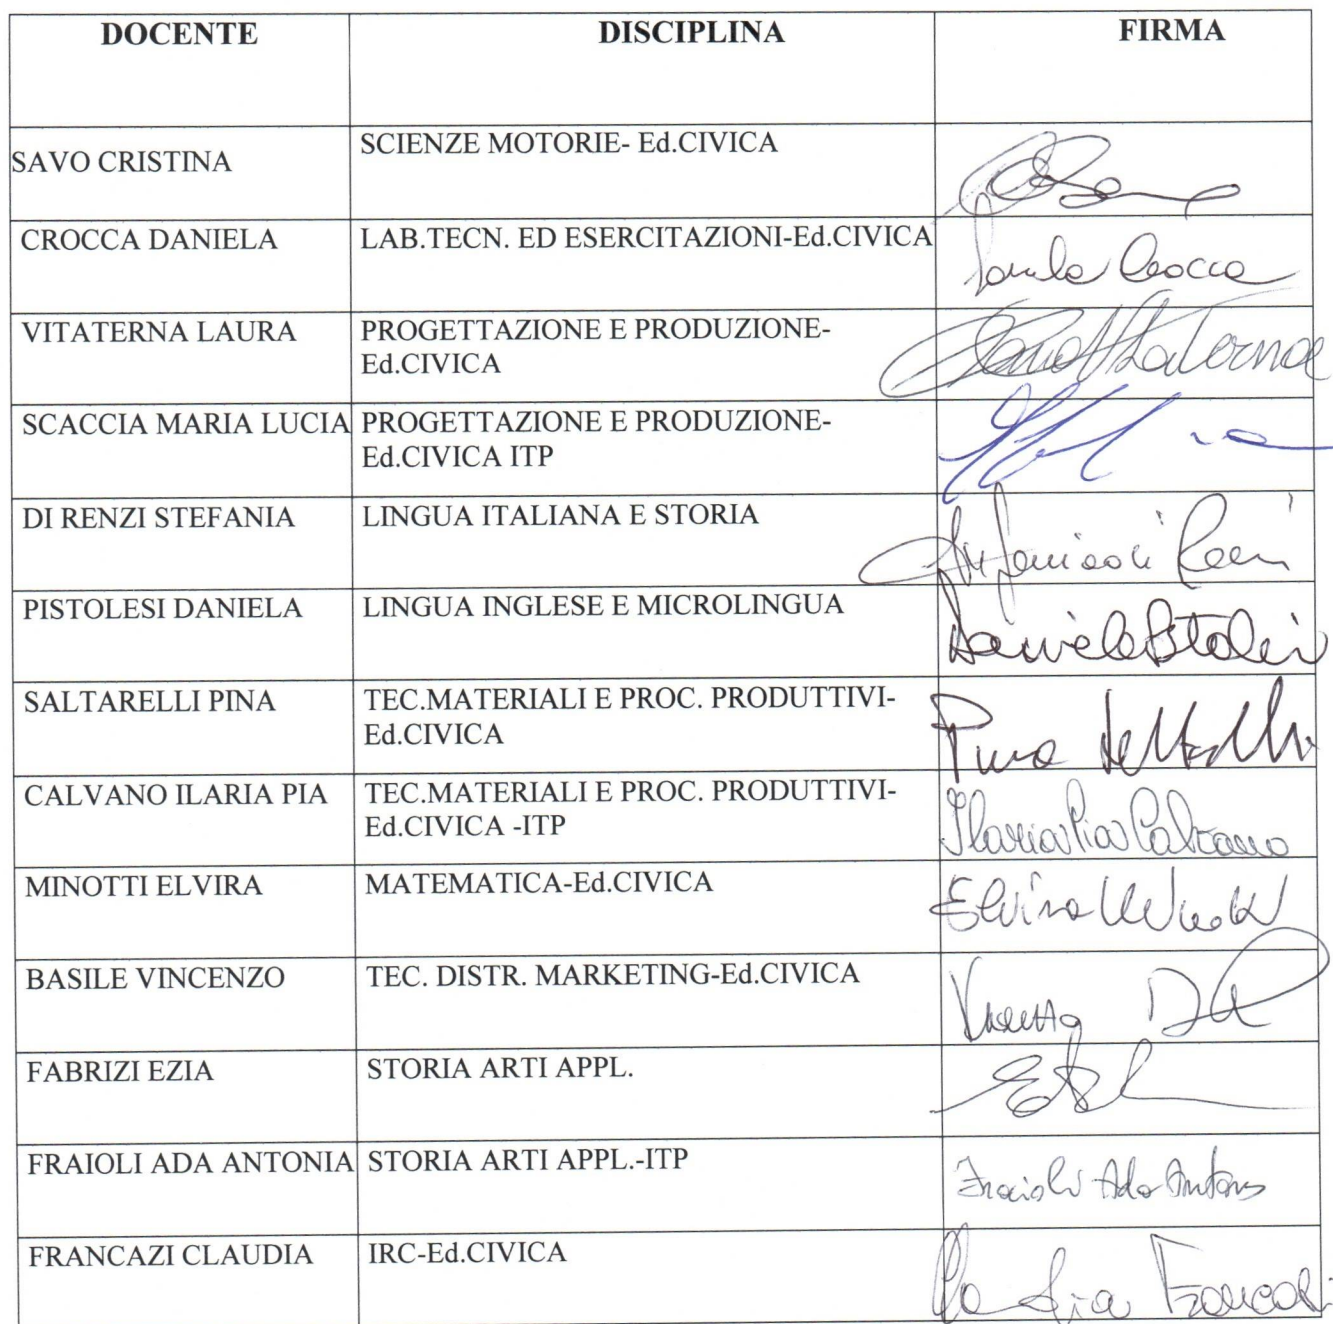 DOCENTE DISCIPLINA FIRMA
SAVO CRISTINA SCIENZE MOTORIE- Ed.CIVICA
CROCCA DANIELA LAB.TECN. ED ESERCITAZIONI-Ed.CIVICA Daniela Crocca
VITATERNA LAURA PROGETTAZIONE E PRODUZIONE-
Ed.CIVICA
SCACCIA MARIA LUCIA PROGETTAZIONE E PRODUZIONE-
Ed.CIVICA ITP
DI RENZI STEFANIA LINGUA ITALIANA E STORIA
PISTOLESI DANIELA LINGUA INGLESE E MICROLINGUA
SALTARELLI PINA TEC.MATERIALI E PROC. PRODUTTIVI-
Ed.CIVICA Pina
CALVANO ILARIA PIA TEC.MATERIALI E PROC. PRODUTTIVI-
Ed.CIVICA -ITP Ilaria Pia Calvano
MINOTTI ELVIRA MATEMATICA-Ed.CIVICA Elvira
BASILE VINCENZO TEC. DISTR. MARKETING-Ed.CIVICA
FABRIZI EZIA STORIA ARTI APPL.
FRAIOLI ADA ANTONIA STORIA ARTI APPL.-ITP Fraioli Ada
FRANCAZI CLAUDIA IRC-Ed.CIVICA